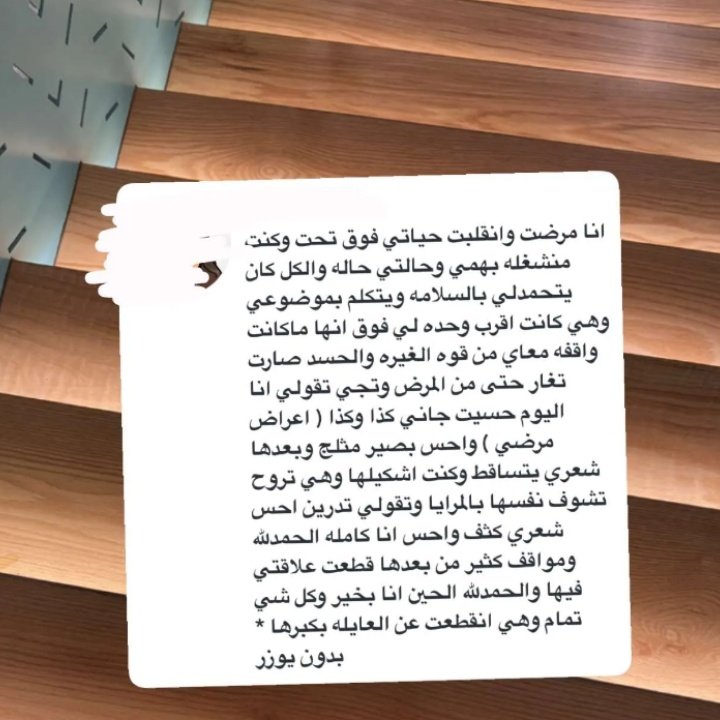 انا مرضت وانقلبت حياتي فوق تحت وكنت
منشغله بهمي وحالتي حاله والكل كان
يتحمدلي بالسلامه ويتكلم بموضوعي
وهي كانت اقرب وحده لي فوق انها ماكانت
واقفه معاي من قوه الغيره والحسد صارت
تغار حتى من المرض وتجي تقولي انا
اليوم حسيت جاني كذا وكذا ( اعراض
مرضي ) واحس بصير مثلج وبعدها
شعري يتساقط وكنت اشكيلها وهي تروح
تشوف نفسها بالمرايا وتقولي تدرين احس
شعري كثف واحس انا كامله الحمدلله
ومواقف كثير من بعدها قطعت علاقتي
فيها والحمدلله الحين انا بخير وكل شي
تمام وهي انقطعت عن العايله بكبرها *
بدون يوزر